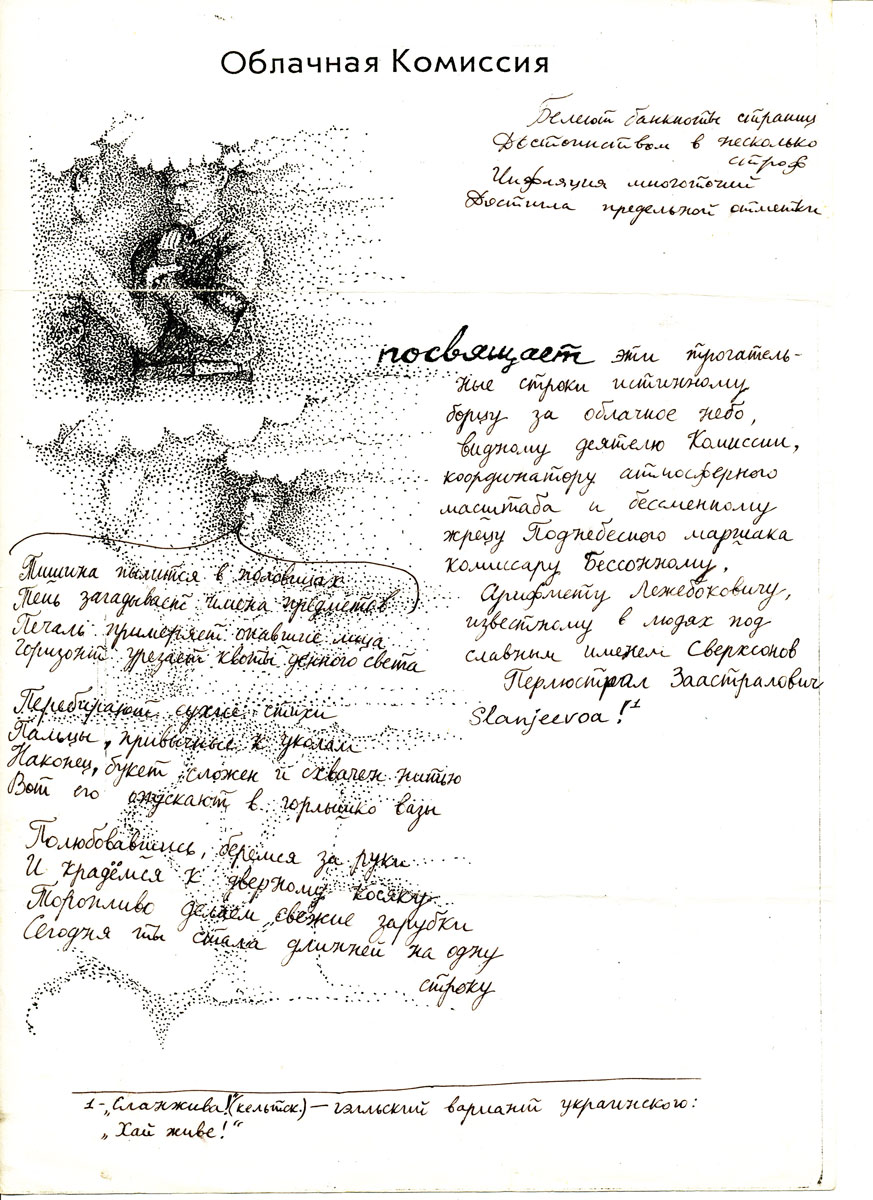 Облачная Комиссия
Белеют банкноты страниц
Достоинством в несколько
строф
Инфляция многоточий
Достигла предельной отметки
посвящает эти трогатель-
ные строки истинному
борцу за облачное небо,
видному деятелю Комиссии,
координатору атмосферного
масштаба и бессменному
жрецу Поднебесного маршака
комиссару Бессонному,
Арифмету Лежебоковичу,
известному в людях под
славным именем Сверхсонов
Перлюстрал Заастралович
Slanjeevoa!¹
Тишина пылится в половицах
Тень загадывает имена предметов
Печаль примеряет опавшие лица
Горизонт урезает квоты денного света
Перебирают сухие стихи
Пальцы, привычные к уколам
Наконец, букет сложен и схвачен нитью
Вот его опускают в горлышко вазы
Полюбовавшись, беремся за руки
И крадёмся к дверному косяку
Торопливо делаем свежие зарубки
Сегодня ты стала длинней на одну
строку
1 - „Сланжива!" (кельтск.) — гэльский вариант украинского:
„Хай живе!"